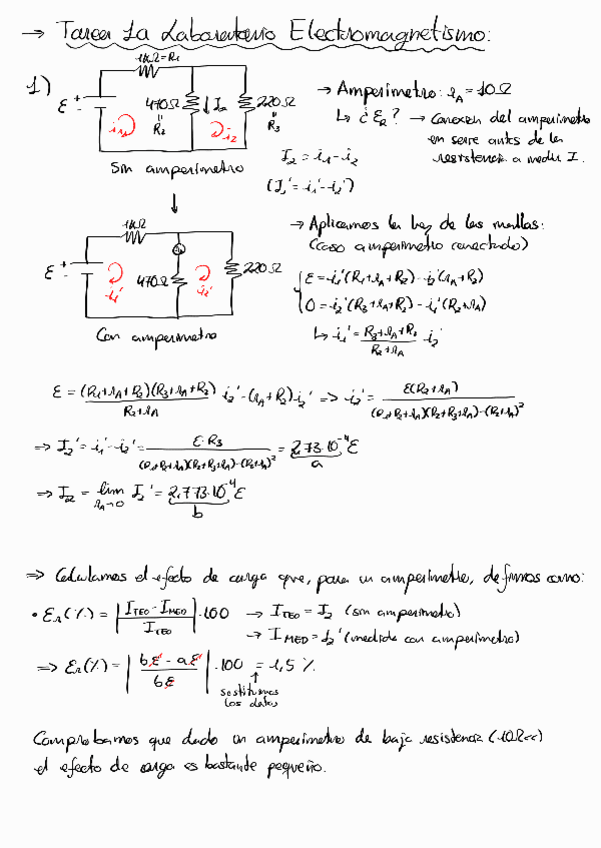 → Tarea 1a Laboratorio Electromagnetismo:
1)
1kΩ=R₁
ε
+
-
470Ω
R₂
I₂
220Ω
R₃
i₁
i₂
Sin amperímetro
→ Amperímetro: r_A = 10Ω
↳ ¿ε_R? → conexión del amperímetro
en serie antes de la
resistencia a medir I.
I₂ = i₁-i₂
(I₂' = i₁'-i₂')
1kΩ
ε
+
-
470Ω
220Ω
Con amperímetro
→ Aplicamos la ley de las mallas:
(caso amperímetro conectado)
ε = i₁'(R₁+r_A+R₂) - i₂'(r_A+R₂)
0 = i₂'(R₃+r_A+R₂) - i₁'(R₂+r_A)
↳ i₁' = (R₃+r_A+R₂)/(R₂+r_A) · i₂'
ε = (R₁+r_A+R₂)(R₃+r_A+R₂)/(R₂+r_A) i₂' - (r_A+R₂)i₂' => i₂' = ε(R₂+r_A)/((R₁+R₂+r_A)(R₂+R₃+r_A)-(R₂+r_A)²)
=> I₂' = i₁'-i₂' = ε·R₃/((R₁+R₂+r_A)(R₂+R₃+r_A)-(R₂+r_A)²) = 2,73·10⁻⁴ ε
a
=> I₂ = lim I₂' = 2,773·10⁻⁴ ε
r_A→0
b
=> Calculamos el efecto de carga que, para un amperímetro, definimos como:
• ε_R(%) = |(I_TEO - I_MED)/I_TEO|·100 → I_TEO = I₂ (sin amperímetro)
→ I_MED = I₂' (medida con amperímetro)
=> ε_R(%) = |(bε - aε)/bε|·100 = 1,5 %
↑
sustituimos
los datos
Comprobamos que dado un amperímetro de baja resistencia (10Ω<<)
el efecto de carga es bastante pequeño.